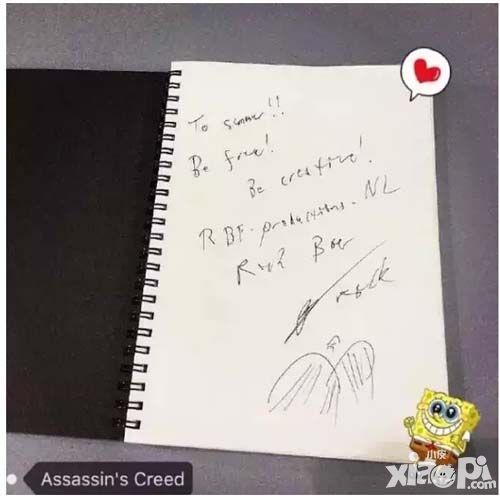 To summer!!
Be free!
Be creative!
RBF-productions-NL
Rick Boer
Assassin's Creed
小皮
xiaopi.com